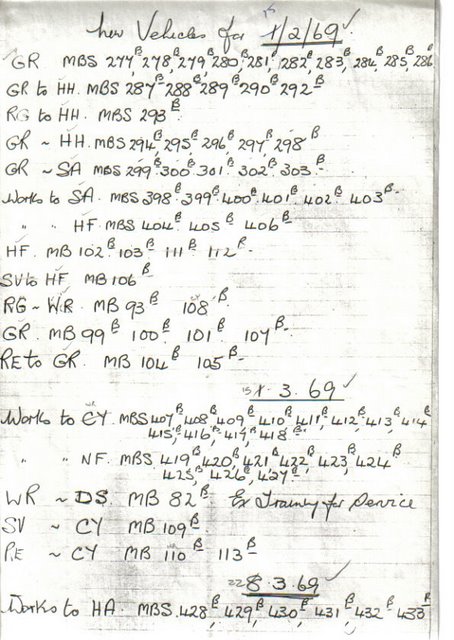 New Vehicles for 1/2/69 ✓
GR MBS 277ᴮ, 278ᴮ, 279ᴮ, 280ᴮ, 281ᴮ, 282ᴮ, 283ᴮ, 284ᴮ, 285ᴮ, 286ᴮ
GR to HH. MBS 287ᴮ 288ᴮ 289ᴮ 290ᴮ 292ᴮ
RG to HH. MBS 293ᴮ
GR ~ HH. MBS 294ᴮ, 295ᴮ, 296ᴮ, 297ᴮ, 298ᴮ
GR ~ SA MBS 299ᴮ 300ᴮ 301ᴮ 302ᴮ 303ᴮ
Works to SA. MBS 398ᴮ 399ᴮ 400ᴮ 401ᴮ 402ᴮ 403ᴮ
" " HF. MBS 404ᴮ 405ᴮ 406ᴮ
HF. MB 102ᴮ 103ᴮ 111ᴮ 112ᴮ
SV to HF MB 106ᴮ
RG ~ WR MB 93ᴮ 108ᴮ
GR. MB 99ᴮ 100ᴮ 101ᴮ 107ᴮ
RE to GR. MB 104ᴮ 105ᴮ
1.3.69 ✓
Works to CY. MBS 407ᴮ 408ᴮ 409ᴮ 410ᴮ 411ᴮ, 412ᴮ, 413ᴮ 414ᴮ
415ᴮ, 416ᴮ, 417ᴮ, 418ᴮ
" " NF. MBS 419ᴮ, 420ᴮ, 421ᴮ, 422ᴮ, 423ᴮ, 424ᴮ
425ᴮ, 426ᴮ, 427ᴮ
WR ~ DS MB 82ᴮ Ex Training for Service
SV ~ CY MB 109ᴮ
RE ~ CY MB 110ᴮ 113ᴮ
22 8.3.69 ✓
Works to HA. MBS. 428ᴮ, 429ᴮ, 430ᴮ, 431ᴮ, 432ᴮ 433ᴮ